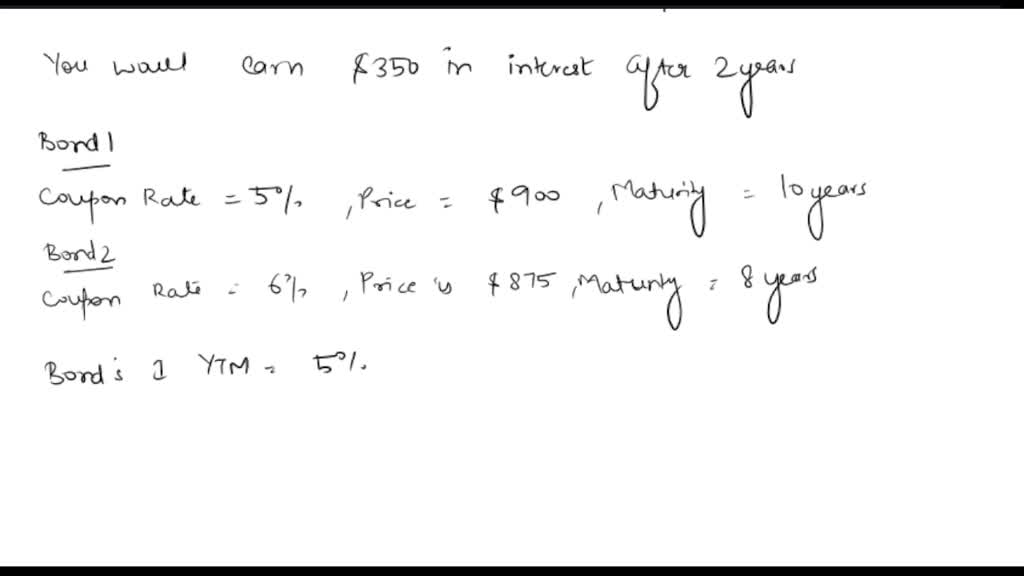 You would earn $350 in interest after 2 years
Bond 1
Coupon Rate = 5%, Price = $900, Maturity = 10 years
Bond 2
Coupon Rate = 6%, Price is $875, Maturity = 8 years
Bond's 1 YTM = 5%.